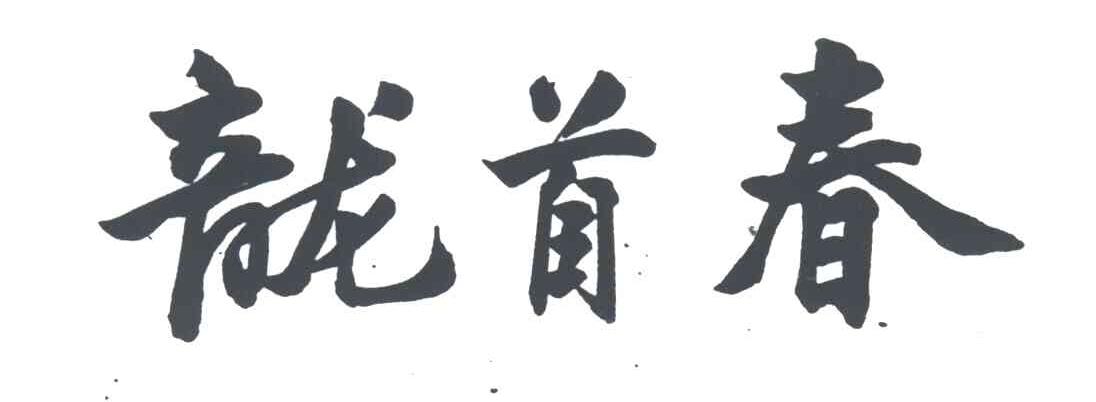 龍首春